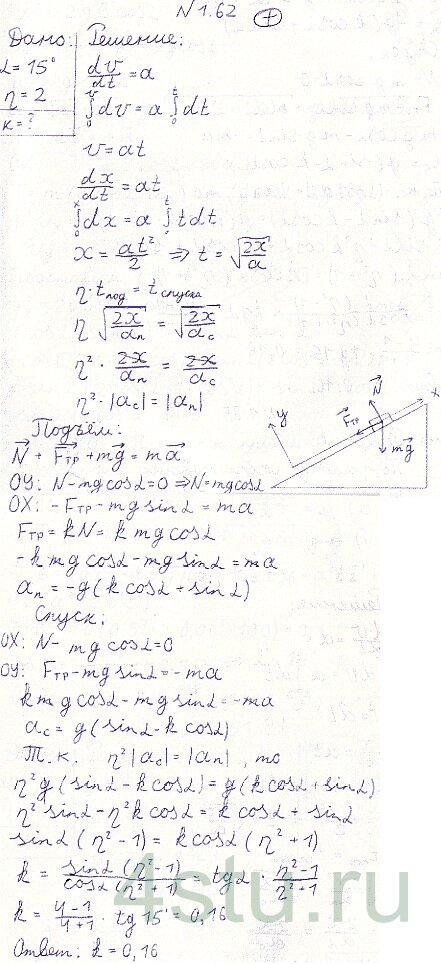 N 1.62 (+)
Дано: Решение:
α = 15°
η = 2
k = ?
dv/dt = a
∫₀ᵛ dv = a ∫₀ᵗ dt
v = at
dx/dt = at
∫₀ˣ dx = a ∫₀ᵗ tdt
x = at²/2 ⇒ t = √(2x/a)
η · tпод = tспуска
η √(2x/aп) = √(2x/aс)
η² · 2x/aп = 2x/aс
η² · |aс| = |aп|
y Fтр N x mg
Подъём:
N⃗ + F⃗тр + mg⃗ = ma⃗
OY: N - mg cosα = 0 ⇒ N = mg cosα
OX: - Fтр - mg sinα = ma
Fтр = kN = k mg cosα
- k mg cosα - mg sinα = ma
aп = - g (k cosα + sinα)
Спуск:
OX: N - mg cosα = 0
OY: Fтр - mg sinα = - ma
k mg cosα - mg sinα = - ma
aс = g (sinα - k cosα)
Т.к. η² |aс| = |aп|, то
η² g (sinα - k cosα) = g (k cosα + sinα)
η² sinα - η² k cosα = k cosα + sinα
sinα (η² - 1) = k cosα (η² + 1)
k = sinα (η² - 1)/cosα (η² + 1) = tgα · η² - 1/η² + 1
k = 4 - 1/4 + 1 · tg 15° = 0,16
Ответ: k = 0,16
4stu.ru